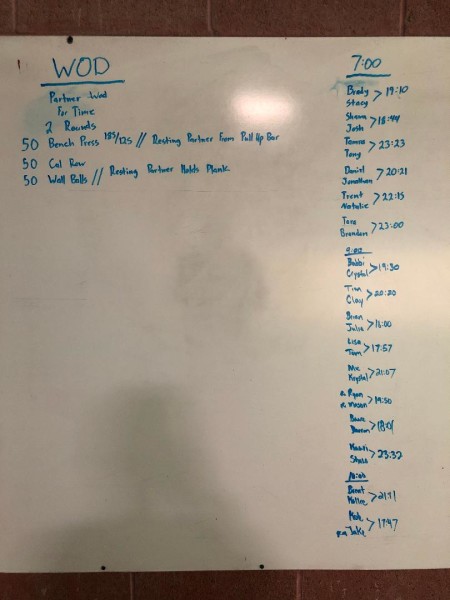 WOD
Partner Wod
For Time
2 Rounds
50 Bench Press 185/125 // Resting Partner From Pull Up Bar
50 Cal Row
50 Wall Balls // Resting Partner Holds Plank
7:00
Brady
Stacy > 19:10
Shawn
Josh > 18:49
Tamra
Tony > 23:23
Daniel
Jonathan > 20:21
Trent
Natalie > 22:15
Tara
Brandon > 23:00
9:00
Bobbi
Crystal > 19:30
Tian
Clay > 20:20
Brian
Julie > 18:00
Lisa
Tom > 17:57
Mic
Krystal > 21:07
Ryan
Mason > 19:50
> 18:01
> 23:32
10:00
Brent
Kellie > 21:11
Kate
Jake > 17:47